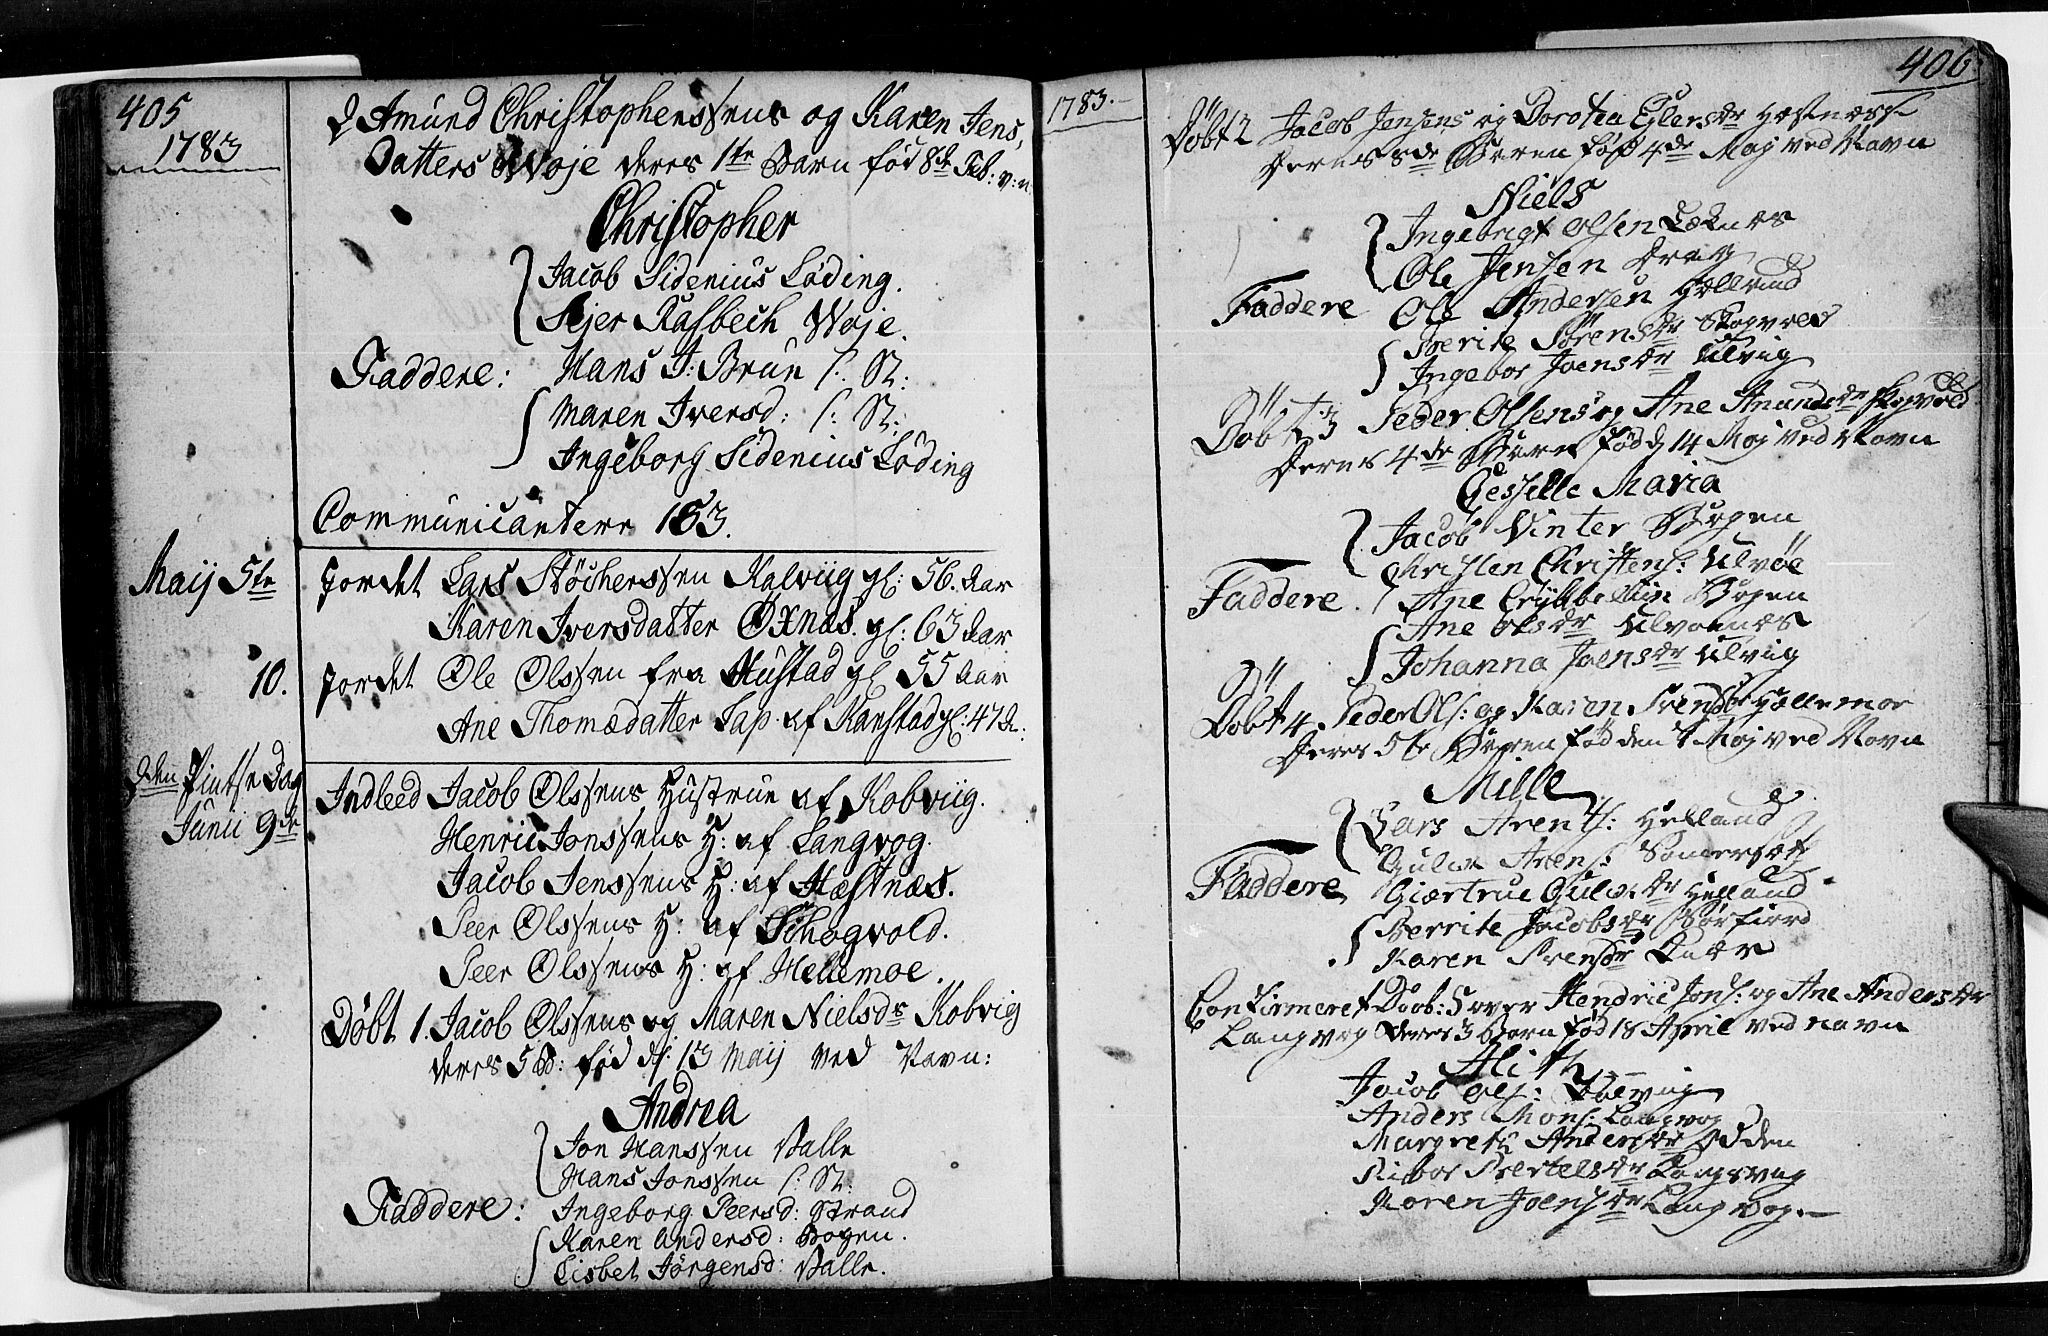 405
1783
2 Amund Christophenssens og Karen Jens,
Datters Woje deres 1te Barn fød 8de Feb: v: n
Christopher
Jacob Sidenius Løding.
Sejer Rasbech Woje.
Faddere: Hans J: Brun S: St:
Maren Iversd: S: St:
Ingeborg Sidenius Løding
Communicantere 163.
Maij 5te jordet Lars Støchenssen Kalviig gl: 56. Aar
Karen Iversdatter Øxnæs. gl: 63 Aar
10. jordet Ole Olssen fra Hustad gl 55 Aar
Ane Thomædatter Lap. af Kanstad gl: 47 A:
2den Pintse Dag
Junii 9de
Indleed Jacob Olssens Hustrue af Kobviig.
Henric Jonssens H: af Langvog.
Jacob Jenssens H: af Hæstnæs.
Peer Olssens H: af Schogvold.
Peer Olssens H: af Hellemoe.
Døbt 1. Jacob Olssens og Maren Nielsdr Kobvig
deres 5 B: fød d: 13 Maij ved Navn:
Andrea
Jon Hanssen Valle
Hans Jonssen S: St:
Faddere: Ingeborg Peersd: Strand
Karen Andersd: Bogen.
Lisbet Jørgensd: Valle.
406
1783.
Døbt 2 Jacob Jensens og Dorotea Eglersdr Hæstnæss
Deres 8de Barn fød 4de Maj ved Navn
Niels
Ingebrigt Olsen Læknæs
Ole Jensen Drag
Faddere Ole Andersen Hælland
Berite Sørensdr Skogvold
Ingebor Joensdr Ulvig
Døbt 3 Peder Olsens og Ane Amundsdr Skogvold
Deres 4de Barn fød d 14 Maj ved Navn
Gesselle Maria
Jacob Vinter Bogen
Christen Christens: Ulvøe
Faddere. Ane Bogen
Ane Olsdr Ulvøenæs
Johanna Joensdr Ulvig
Døbt 4. Peder Ols: og Karen Svensdr Hællemoe
Deres 5te Barn fød den Maj ved Navn
Mille
Lars Arents: Helland
Gulav Arens: Somersætt
Faddere Giærtrue Gulavdr Helland
Berrite Jacobsdr Sørfiord
Karen Svensdr Qvær
Confirmeret Daab: 5 over Hendric Jons: og Ane Andersdr
Langvog Deres 3 born fød 18 April ved navn
Alith
Jacob Ols: Kobvig
Anders Mons: Langvog
Margrete Andersdr Odden
Sibor Bertelsdr Langsvag
Karen Joensdr Langvog.